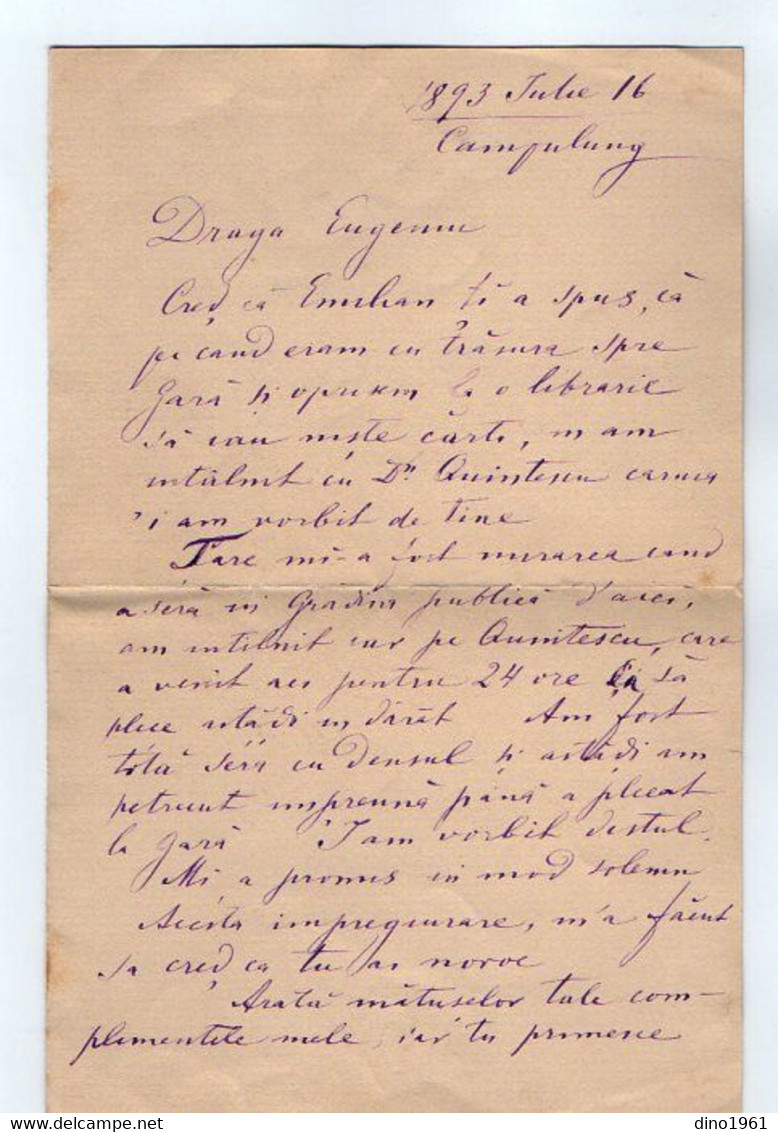 1893 Iulie 16
Campulung
Draga Eugeniu
Cred̦ că Emilian ți a spus, că
pe cand eram cu trăsura spre
gară și oprisem la o librarie
să iau niște cărți, m am
intâlnit cu Dn Quintescu caruia
'i am vorbit de tine
Tare mi-a fost mirarea cand
aséră in Grădina publică d'aici,
am intîlnit iar pe Quintescu, care
a venit aci pentru 24 ore ca să
plece astăd̦i in dărăt Am fost
tótă séra cu densul și astăd̦i am
petrecut impreună până a plecat
la gară I am vorbit destul.
Mi a promis in mod solemn
Acésta impregiurare, m'a făcut
sa cred̦ ca tu ai noroc
Arată mătușelor tale com-
plimentele mele, iar tu primesce
dino1961